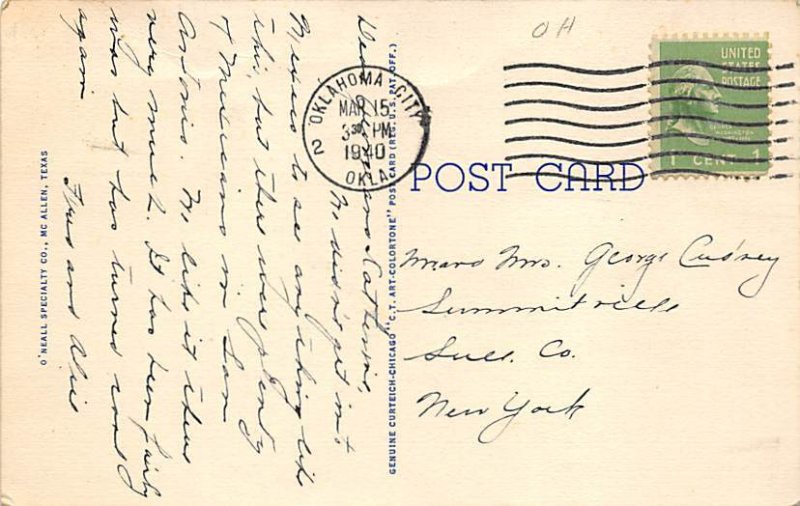 OH
UNITED
STATES
POSTAGE
GEORGE
WASHINGTON
1 CENT 1
OKLAHOMA CITY
MAR 15
3 30 PM
1940
OKLA.
2
POST CARD
Dear and Katherine,
We didn't get into
Mexico to see anything like
this, but there were plenty
of Mexicans in San
Antonio. We like it there
very much. It has been fairly
warm but has turned cool
again
Fred and Alice
Mr and Mrs. George Cudney
Summitville
Sull. Co.
New York
GENUINE CURTEICH-CHICAGO "C.T. ART-COLORTONE" POST CARD (REG. U.S. PAT. OFF.)
O'NEALL SPECIALTY CO., MC ALLEN, TEXAS